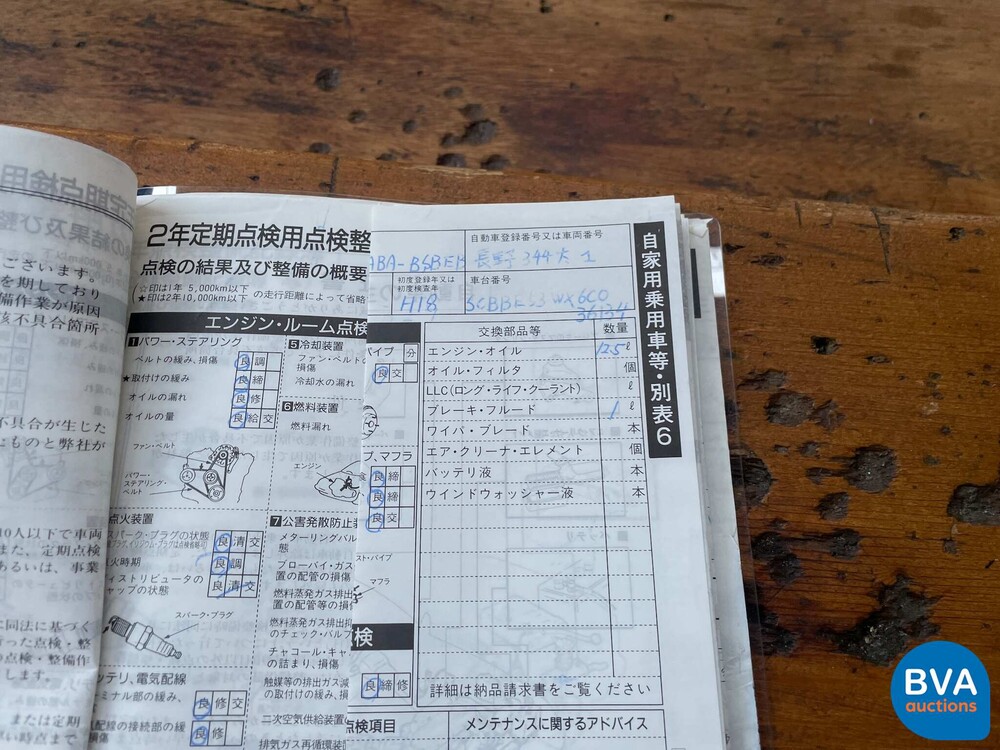 ございます。
を期しており
備作業が原因
該不具合箇所
不具合が生じた
たものと弊社が
10人以下で車両
また、定期点検
あるいは、事業
に同法に基づく
行った点検・整
の点検・整備作
します。
または定期
2年定期点検用点検整
点検の結果及び整備の概要
(☆印は1年 5,000km以下
★印は2年10,000km以下 の走行距離によって省略
エンジン・ルーム点検
1 パワー・ステアリング
ベルトの緩み、損傷 良 調
★取付けの緩み 良 締
オイルの漏れ 良 修
オイルの量 良 給 交
ファン・ベルト
パワー・
ステアリング・
ベルト
点火装置
スパーク・プラグの状態 良 清 交
火時期 良 調
ディストリビュータの
キャップの状態 良 清 交
スパーク・プラグ
バッテリ、電気配線
ターミナル部の緩み、 良 修 交
配線の接続部の緩 良 修
5 冷却装置
ファン・ベルトの
冷却水の漏れ
6 燃料装置
燃料漏れ
エンジン
7 公害発散防止装
メターリングバル
態
ブローバイ・ガス
置の配管の損傷
燃料蒸発ガス排出
置の配管等の損傷
燃料蒸発ガス排出抑
のチェック・バルブ
チャコール・キャ
の詰まり、損傷
触媒等の排出ガス減
の取付けの緩み、損
二次空気供給装置の
排気ガス再循環装
パイプ 分
良 交
プ、マフラ
良 締
良 締
良 交
マフラ
検
良 締 修
点検項目
自動車登録番号又は車両番号
ABA-BSBEB 長野 344 た 1
初度登録年又は
初度検査年
車台番号
H18
SCBBE53WX6C0
36134
交換部品等 数量
エンジン・オイル 12.5 ℓ
オイル・フィルタ 個
LLC(ロング・ライフ・クーラント) ℓ
ブレーキ・フルード 1 ℓ
ワイパ・ブレード 本
エア・クリーナ・エレメント 個
バッテリ液 本
ウインドウォッシャー液 本
詳細は納品請求書をご覧ください
メンテナンスに関するアドバイス
自家用乗用車等・別表6
BVA
auctions